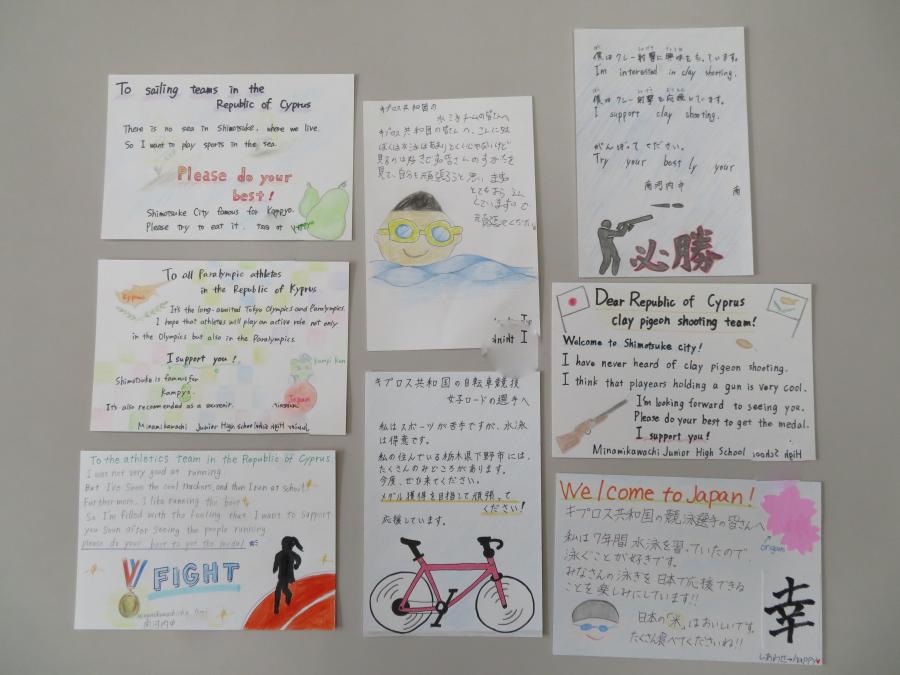 To sailing teams in the
Republic of Cyprus
There is no sea in Shimotsuke, where we live.
So I want to play sports in the sea.
Please do your
best!
Shimotsuke City famous for Kampyo.
Please try to eat it.
To all Paralympic athletes
in the Republic of Kyprus
Kyprus
It's the long-awaited Tokyo Olympics and Paralympics.
I hope that athletes will play an active role not only
in the Olympics but also in the Paralympics.
I support you!
Kampi Kun
Shimotsuke is famous for
Kampyo.
Japan
It's also recommended as a souvenir.
Minamikawachi Junior High school
To the athletics team in the Republic of Cyprus
I was not very good at running.
But I've soon the cool trackers, and then I ran at school.
Furthermore, I like running the best
So I'm filled with the feeling that I want to support
you soon after seeing the people running
please do your best to get the medal
FIGHT
南河内中
キプロス共和国の
水泳チームの皆さんへ
キプロス共和国の皆さんへ、こんにちは
ぼくは水泳はあまりとくいじゃないけど
I think
キプロス共和国の自転車競技
女子ロードの選手へ
私はスポーツが苦手ですが、水泳
は得意です。
私の住んでいる栃木県下野市には、
たくさんのみどころがあります。
今度、ぜひ来てください。
メダル獲得を目指して頑張って
ください!
応援しています。
僕はクレー射撃に興味をもっています。
I'm interested in clay shooting.
僕はクレー射撃を応援しています。
I support clay shooting.
がんばってください。
Try your best ly your
南河内中
南
必勝
Dear Republic of Cyprus
clay pigeon shooting team!
Welcome to Shimotsuke city!
I have never heard of clay pigeon shooting.
I think that playears holding a gun is very cool.
I'm looking forward to seeing you.
Please do your best to get the medal.
I support you!
Minamikawachi Junior High School
Welcome to Japan!
キプロス共和国の競泳選手の皆さんへ
origami
私は7年間水泳を習っていたので
泳ぐことが好きです。
みなさんの泳ぎを日本で応援できる
ことを楽しみにしています!!
日本の米はおいしいです。
たくさん食べてくださいね!!
幸
しあわせ→happy